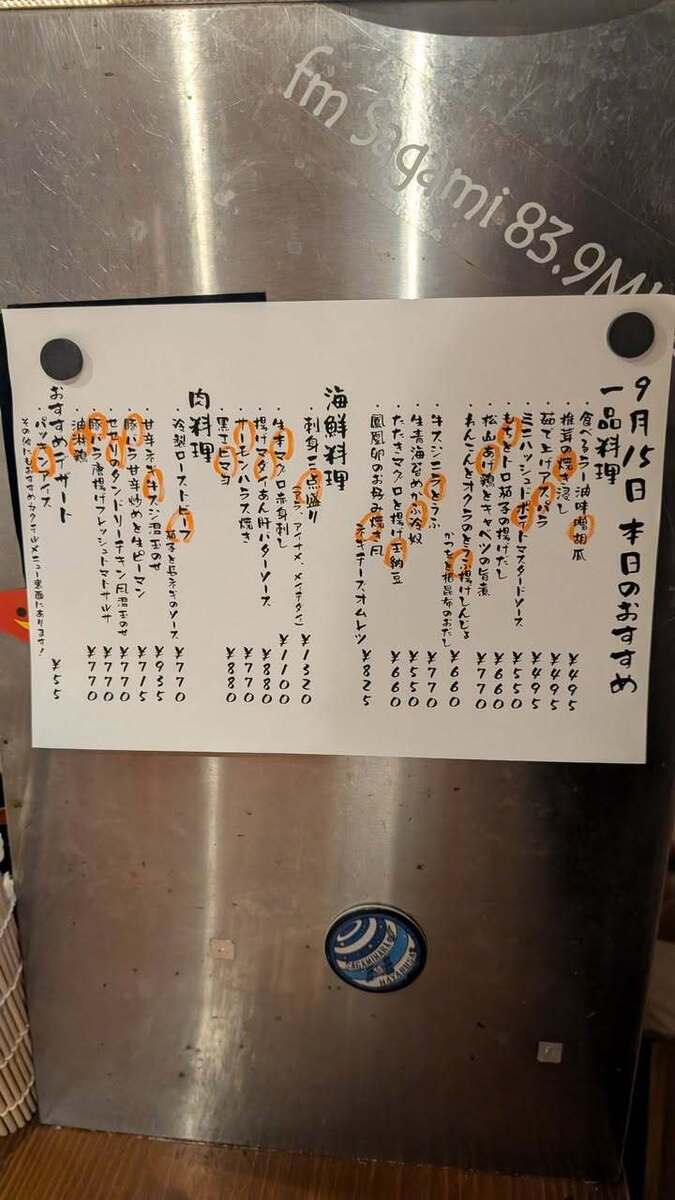 fm Sagami 83.9M
9月15日 本日のおすすめ
一品料理
・食べるラー油味噌胡瓜 ¥495
・椎茸の焼き浸し ¥495
・茹で上げアスパラ ¥495
・ミニハッシュドポテトマスタードソース ¥550
・もちとトロ茄子の揚げだし ¥660
・松山あげ鶏とキャベツの旨煮 ¥770
・れんこんとオクラのとうふ揚げしんじょ
かつおと根昆布のおだし ¥660
・牛スジニラとうふ ¥770
・生青海苔めかぶ冷奴 ¥550
・たたきマグロと揚げ玉納豆 ¥660
・鳳凰卵のお好み焼き風
ネギチーズオムレツ ¥825
海鮮料理
・刺身三点盛り ¥1320
(アジ、アイナメ、メイチダイ)
・生本マグロ赤身刺し ¥1100
・揚げマダイあん肝バターソース ¥880
・サーモンハラス焼き ¥770
・黒エビマヨ ¥880
肉料理
・冷製ローストビーフ
茄子と長ネギのソース ¥770
・甘辛ネギ牛スジ温玉のせ ¥935
・豚バラ甘辛炒めと生ピーマン ¥715
・せせりのタンドリーチキン風温玉のせ ¥770
・豚バラ唐揚げフレッシュトマトサルサ ¥770
・油淋鶏 ¥770
おすすめデザート
・パッションアイス ¥55
その他にもおすすめカクテルメニュー裏面にあります!
SAGAMIHARA
HAYABUSA